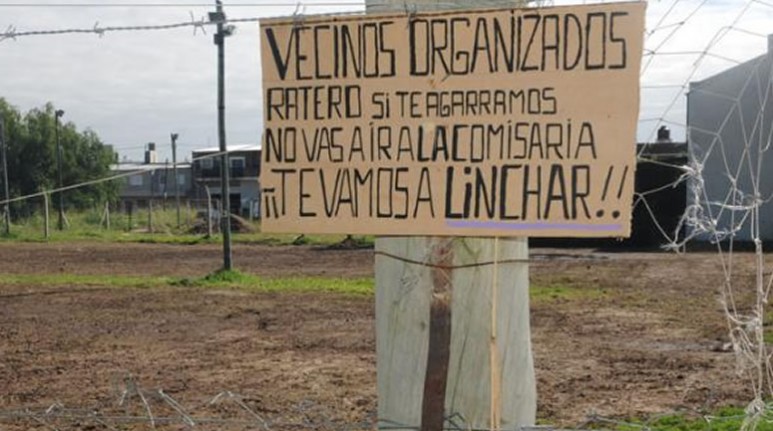 VECINOS ORGANIZADOS
RATERO Si TE AGARRAMOS
NO VAS A iR A LA COMISARIA
¡¡TE VAMOS A LiNCHAR!!